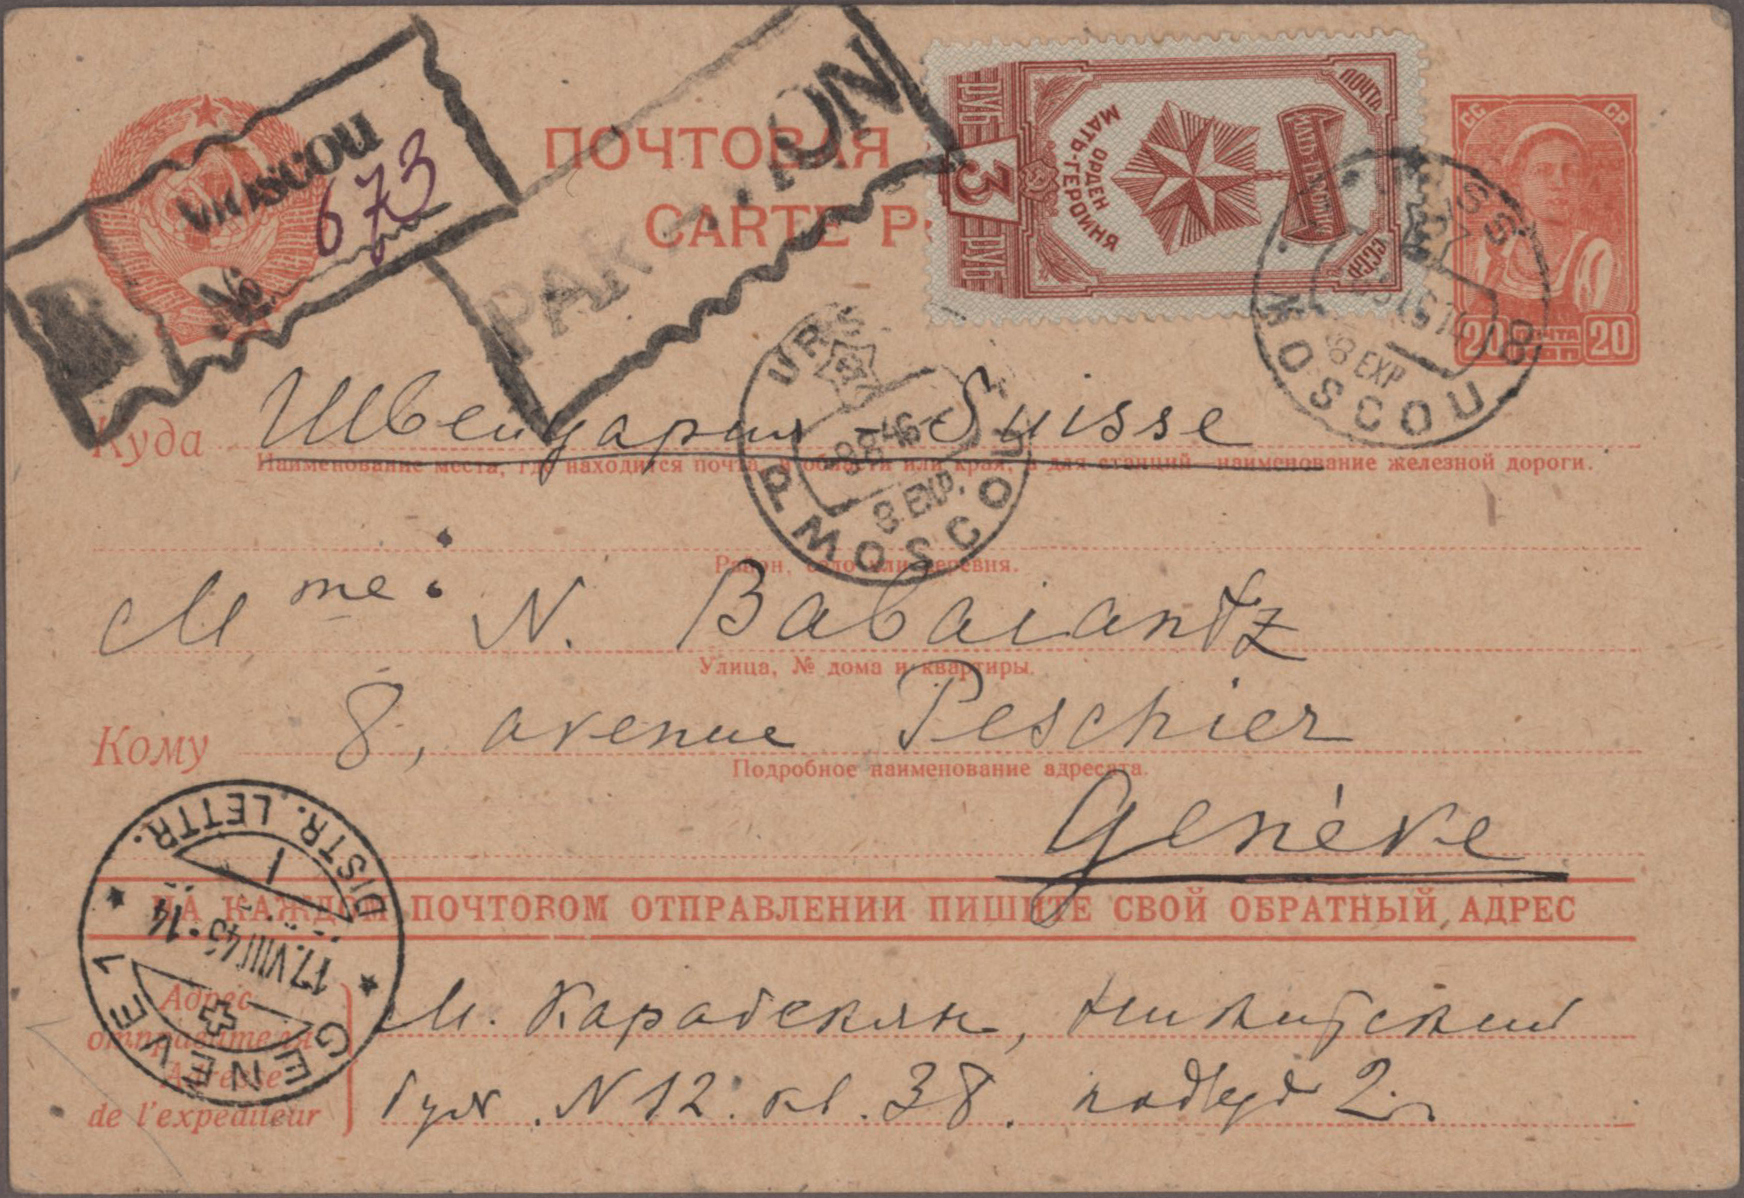 R Moscou
№ 673
PAR AVION
ПОЧТОВАЯ
CARTE P
ПОЧТА СССР
МАТЬ-ГЕРОИНЯ
ОРДЕН
МАТЬ-ГЕРОИНЯ
РУБ 3 РУБ
СС СР
20 ПОЧТА 20
MOSCOU
8 EXP
Куда Швейцария - Suisse
Наименование места, где находится почта, и области или края, а для станций наименование железной дороги.
URSS
8 8 46
8 EXP.
P. MOSCOU
Район, село или деревня.
Mme N. Babaiantz
Улица, № дома и квартиры.
Кому 8, avenue Peschier
Подробное наименование адресата.
Genève
НА КАЖДОМ ПОЧТОВОМ ОТПРАВЛЕНИИ ПИШИТЕ СВОЙ ОБРАТНЫЙ АДРЕС
GENEVE 1
17.VIII 46-14
DISTR. LETTR.
Адрес
отправителя
Adresse
de l'expéditeur
М. Карабекян, Никитский
бул. N 12. кв. 38. подъезд 2.